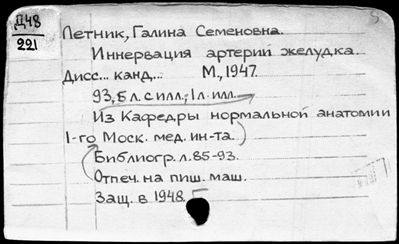 Д48
221
Петник, Галина Семеновна.
Иннервация артерий желудка.
Дисс... канд... М., 1947.
93, Б л. с илл., 1 л. илл.
Из Кафедры нормальной анатомии
1-го Моск. мед. ин-та.
Библиогр. л. 85-93.
Отпеч. на пиш. маш.
Защ. в 1948 Г